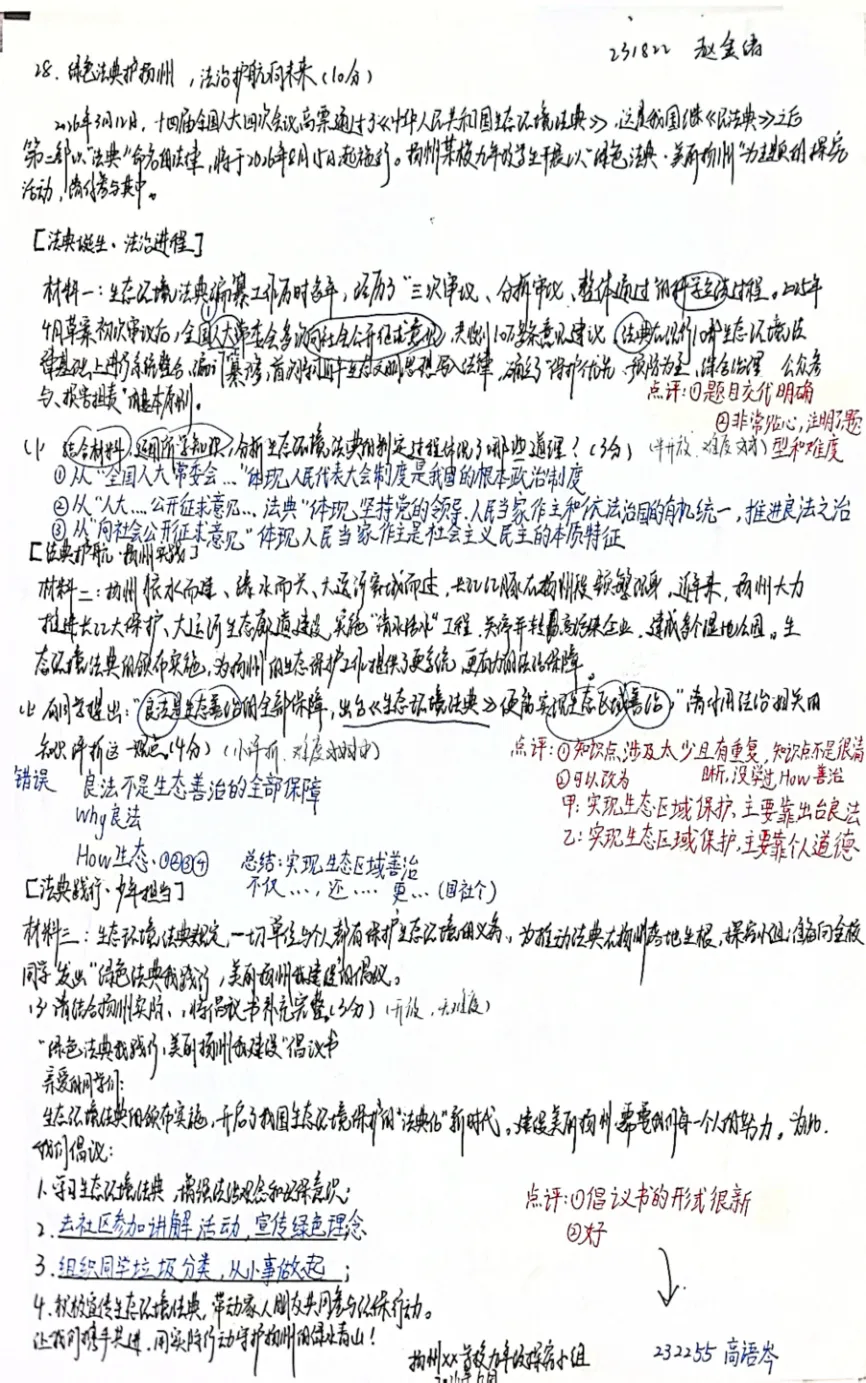 231822 赵金绪
28. 绿色法典护扬州，法治护航向未来（10分）
2026年3月12日，十四届全国人大四次会议高票通过了《中华人民共和国生态环境法典》，这是我国继《民法典》之后
第二部以“法典”命名的法律，将于2026年8月15日起施行。扬州某校九年级学生开展以“绿色法典·美丽扬州”为主题的探究
活动，请你参与其中。
［法典诞生·法治进程］
材料一：生态环境法典编纂工作历时多年，经历了“三次审议、分拆审议、整体通过”的科学立法过程。2025年
4月草案初次审议后，全国人大常委会多次向社会公开征求意见，共收到10万多条意见建议，法典在现行10部生态环境法
律基础上进行系统整合、编订纂修，首次将习近平生态文明思想写入法律，确立了“保护优先、预防为主、综合治理、公众参
与、损害担责”的基本原则。
点评：①题目交代明确
②非常贴心，注明了题
型和难度
(1) 结合材料，运用所学知识，分析生态环境法典的制定过程体现了哪些道理？（3分）（半开放、难度对）
①从“全国人大常委会…”体现人民代表大会制度是我国的根本政治制度
②从“人大….公开征求意见…，法典”体现坚持党的领导、人民当家作主和依法治国的有机统一，推进良法之治
③从“向社会公开征求意见”体现人民当家作主是社会主义民主的本质特征
［法典护航·扬州实践］
材料二：扬州依水而建、缘水而兴、大运河穿城而过，长江江豚在扬州段频繁现身。近年来，扬州大力
推进长江大保护、大运河生态廊道建设，实施“清水活水”工程，关停并转高污染企业，建成多个湿地公园。生
态环境法典的颁布实施，为扬州的生态保护工作提供了更系统、更有力的法治保障。
(2) 有同学提出：“良法是生态善治的全部保障，出台《生态环境法典》便能实现生态区域善治。”请你用法治相关的
知识评析这一观点（4分）（小评析、难度对中）
点评：①知识点涉及太少且有重复，知识点不是很清
晰，没学过How善治
②可以改为
甲：实现生态区域保护，主要靠出台良法
乙：实现生态区域保护，主要靠个人道德
错误 良法不是生态善治的全部保障
why良法
How生态、①②③④ 总结：实现生态区域善治
不仅…，还….更…（国社个）
［法典践行·少年担当］
材料三：生态环境法典规定，一切单位与个人都有保护生态环境的义务，为推动法典在扬州落地生根，探究小组准备向全校
同学发出“绿色法典我践行，美丽扬州我建设”的倡议。
(3) 请结合扬州实际，将倡议书补充完整。（3分）（开放，无难度）
“绿色法典我践行，美丽扬州我建设”倡议书
亲爱的同学们：
生态环境法典的颁布实施，开启了我国生态环境保护的“法典化”新时代。建设美丽扬州需要我们每一个人的努力。为此，
我们倡议：
1. 学习生态环境法典，增强法治观念和环保意识；
2. 去社区参加讲解活动，宣传绿色理念
3. 组织同学垃圾分类，从小事做起；
4. 积极宣传生态环境法典，带动家人朋友共同参与环保行动。
让我们携手共进，用实际行动守护扬州的绿水青山！
点评：①倡议书的形式很新
②好
扬州XX学校九年级探究小组
2026年6月
232255 高语岑